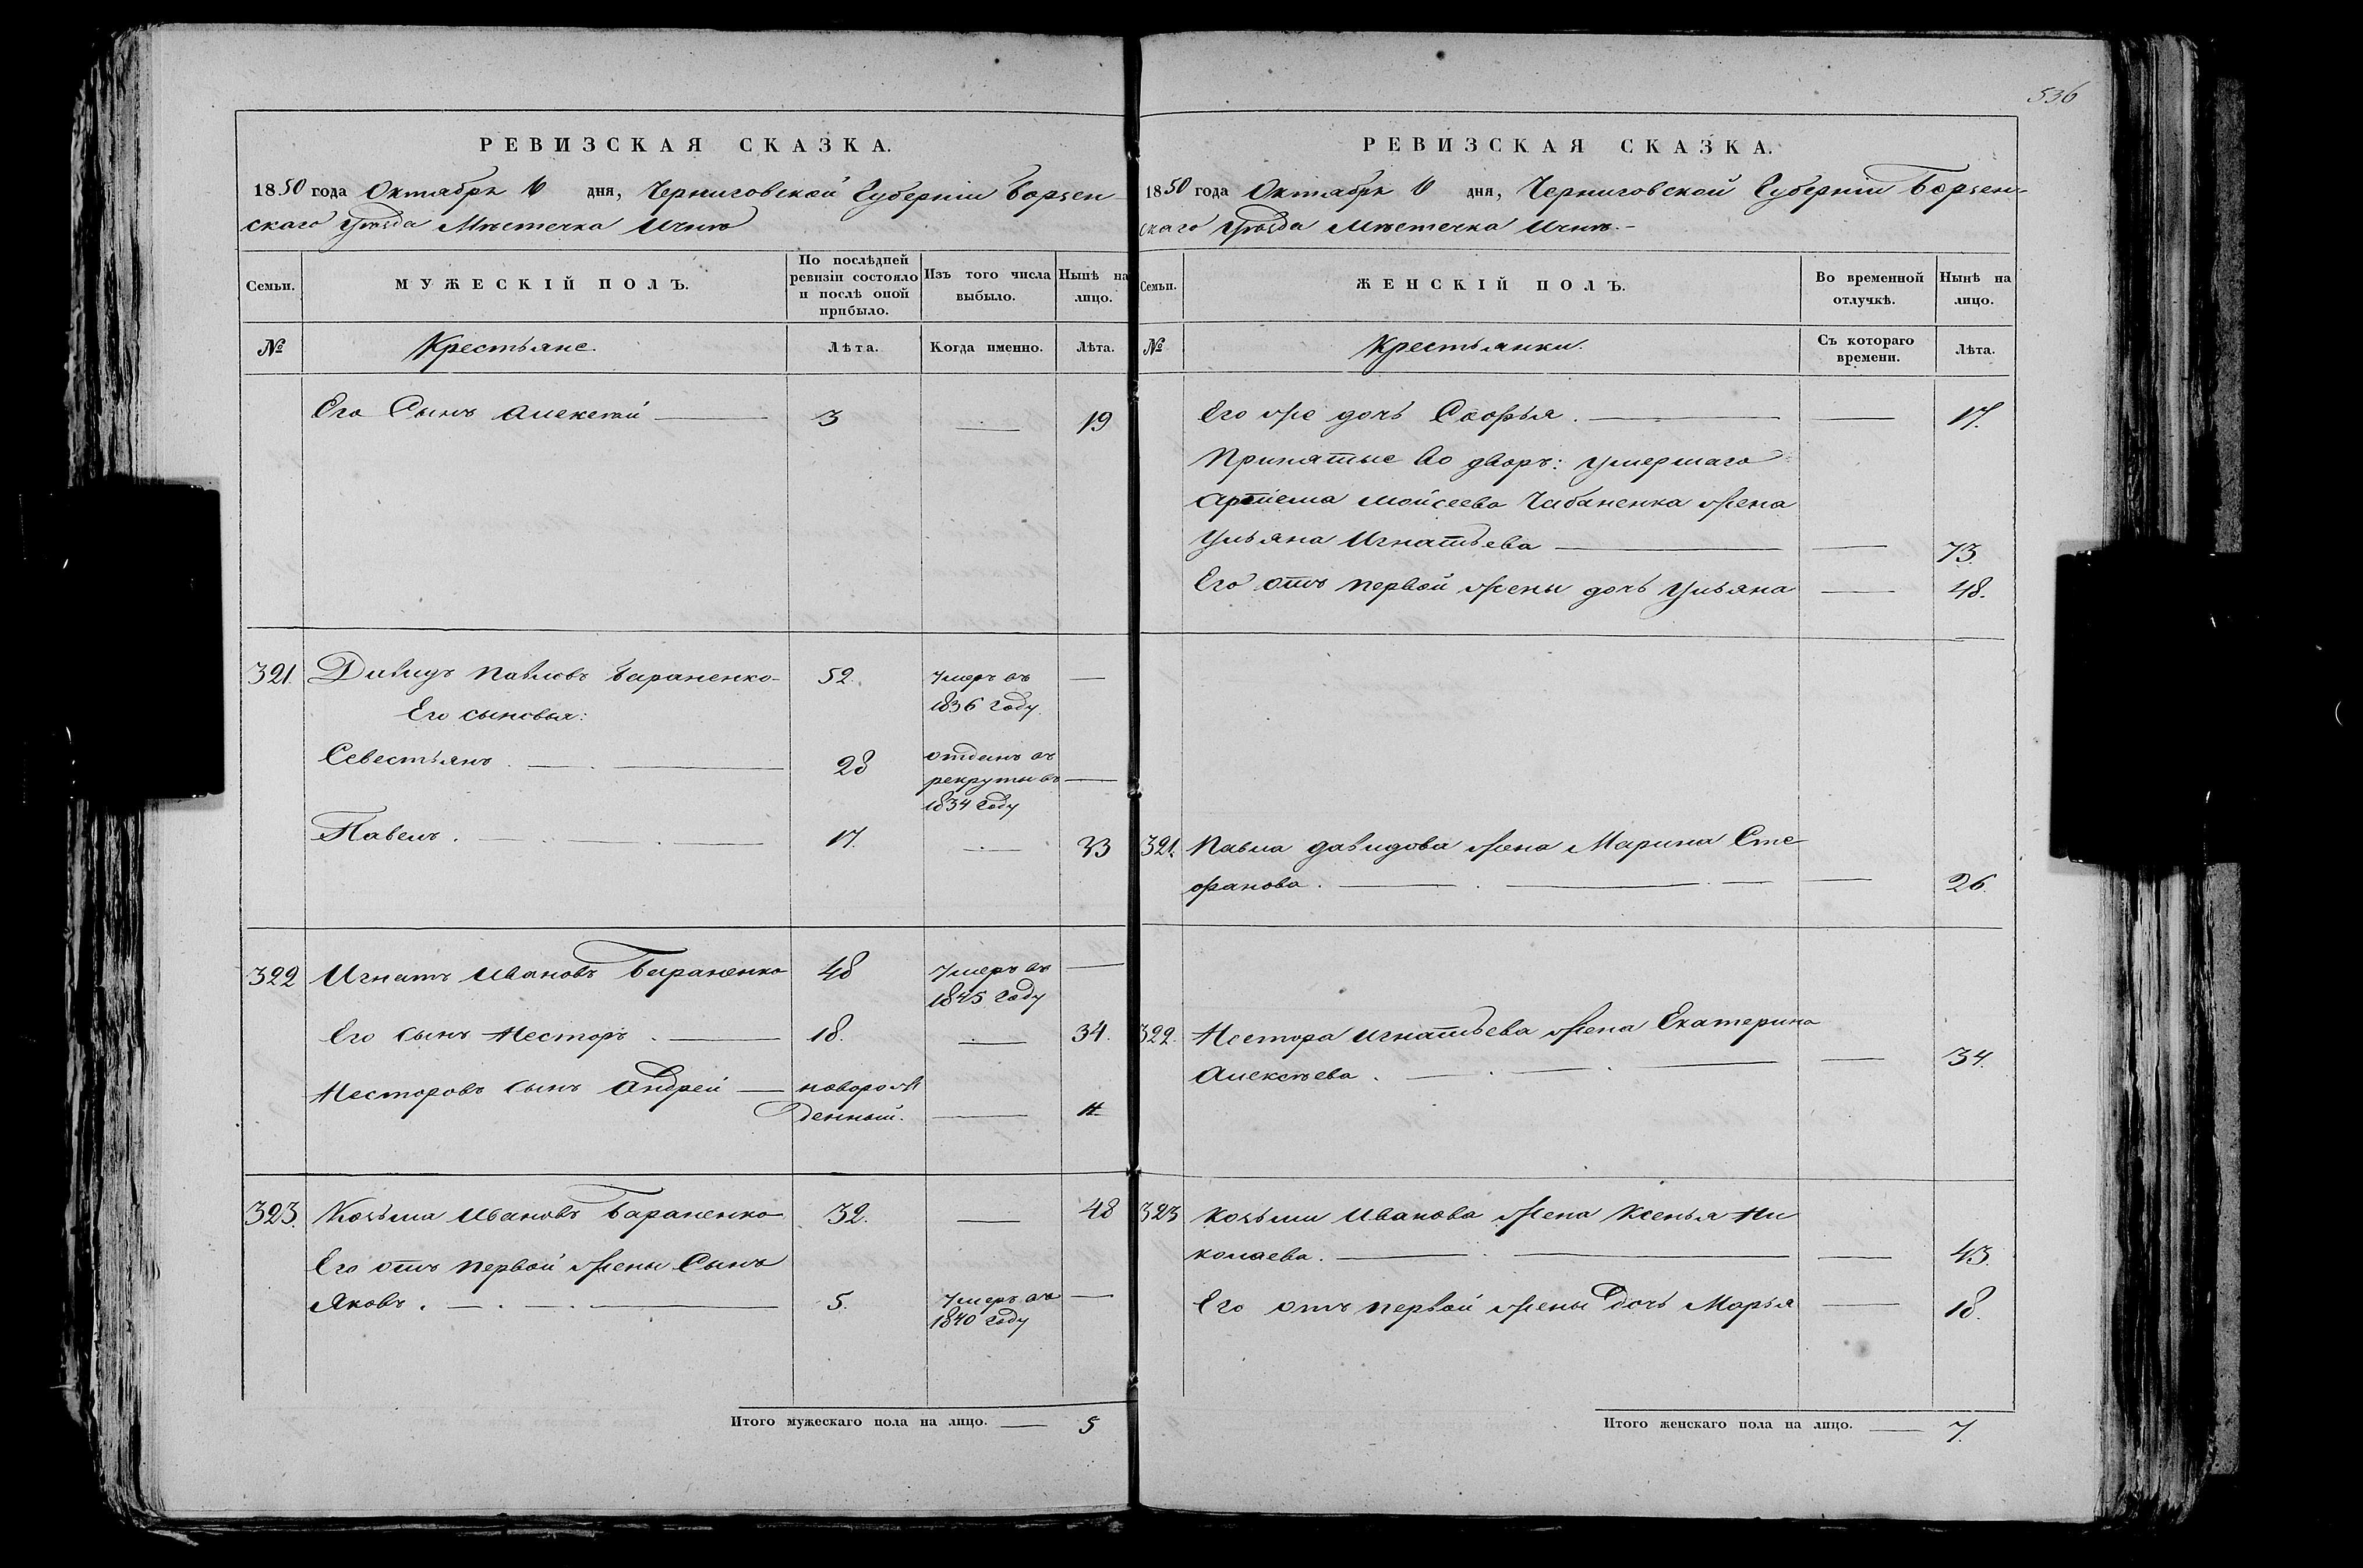 536
РЕВИЗСКАЯ СКАЗКА.
1850 года Октября 10 дня, Черниговской Губерніи Борзен-
скаго Уѣзда Мѣстечка Ичнѣ
Семьи.
МУЖЕСКІЙ ПОЛЪ.
По послѣдней ревизіи состояло и послѣ оной прибыло.
Изъ того числа выбыло.
Нынѣ на лицо.
№
Крестьяне.
Лѣта.
Когда именно.
Лѣта.
Его Сынъ Алексѣй 3 19
321. Давидъ Павловъ Бараненко 52. Умеръ въ 1836 Году.
Его сыновья:
Севестьянъ 28 отданъ въ рекруты въ 1834 Году
Павелъ. 17. 33
322 Игнатъ Ивановъ Бараненко 48 Умеръ въ 1845 Году
Его сынъ Несторъ 18. 34.
Несторовъ сынъ Андрей новорож
денный.
323. Козьма Ивановъ Бараненко 32. 48
Его отъ первой жены Сынъ
Яковъ. 5. Умеръ въ 1840 Году
Итого мужескаго пола на лицо. 5
РЕВИЗСКАЯ СКАЗКА.
1850 года Октября 10 дня, Черниговской Губерніи Борзен-
скаго Уѣзда Мѣстечка Ичнѣ.-
Семьи.
ЖЕНСКІЙ ПОЛЪ.
Во временной отлучкѣ.
Нынѣ на лицо.
№
Крестьянки.
Съ котораго времени.
Лѣта.
Его же дочь Софья. 17.
Принятые во дворъ: умершаго
Артіема Мойсеева Чабаненка жена
Ульяна Игнатьева 73.
Его отъ первой жены дочь Ульяна 48.
321. Павла Давидова жена Марина Сте
фанова. 26.
322. Нестора Игнатьева жена Екатерина
Алексѣева. 34.
323 Козьмы Иванова жена Ксенья Ни
колаева. 43.
Его отъ первой жены дочь Марья 18.
Итого женскаго пола на лицо. 7.